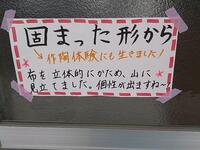 固まった形から
→作陶体験にも生きました!
布を立体的にかため、山に
見立てました。個性が出ますね~!